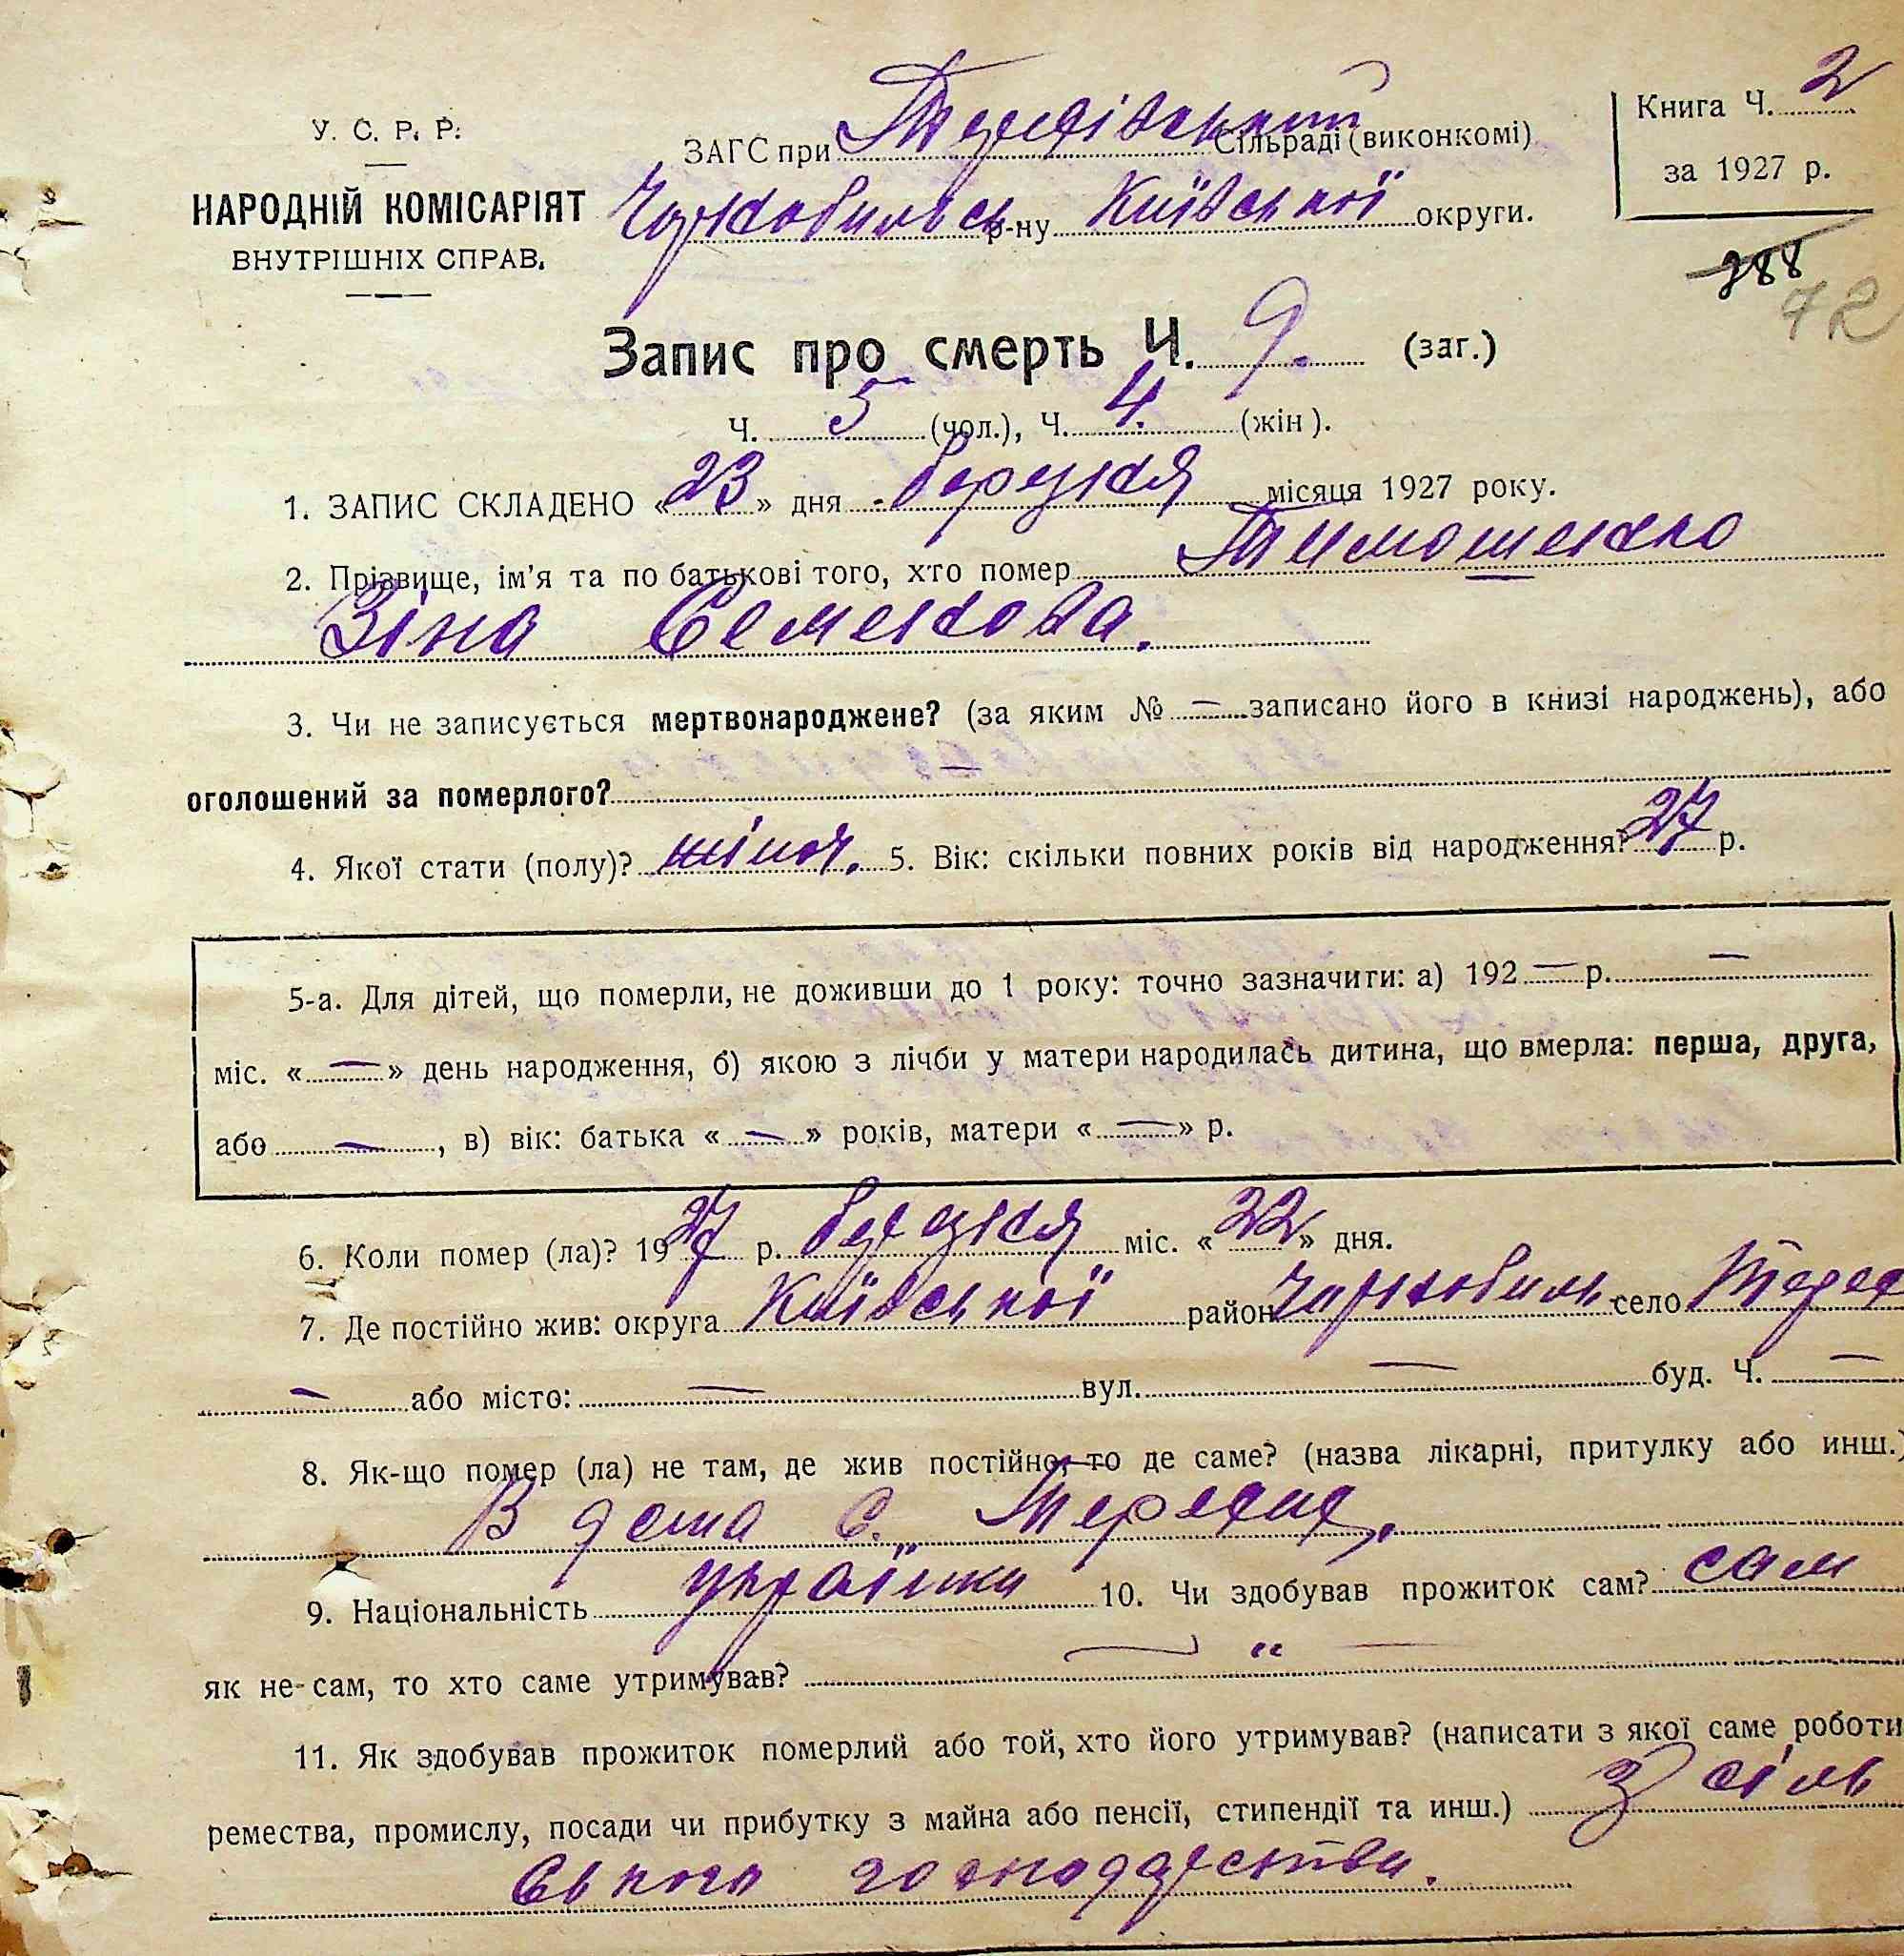 У. С. Р. Р.
НАРОДНІЙ КОМІСАРІЯТ
ВНУТРІШНІХ СПРАВ.
ЗАГС при Сільраді (виконкомі)
Чорнобильсь р-ну Київської округи.
Книга Ч. 2
за 1927 р.
288
72
Запис про смерть Ч. 9. (заг.)
Ч. 5 (чол.), Ч. 4. (жін).
1. ЗАПИС СКЛАДЕНО «23» дня березня місяця 1927 року.
2. Прізвище, ім'я та по батькові того, хто помер Тимошенко
Зіна Семенова.
3. Чи не записується мертвонароджене? (за яким № — записано його в книзі народжень), або
оголошений за померлого? —
4. Якої стати (полу)? жіноч. 5. Вік: скільки повних років від народження? 27 р.
5-а. Для дітей, що померли, не доживши до 1 року: точно зазначити: а) 192 — р. —
міс. « — » день народження, б) якою з лічби у матери народилась дитина, що вмерла: перша, друга,
або — , в) вік: батька « — » років, матери « — » р.
6. Коли помер (ла)? 1927 р. березня міс. «22» дня.
7. Де постійно жив: округа Київської район Чорнобиль село Терех
— або місто: — вул. — буд. Ч. —
8. Як-що помер (ла) не там, де жив постійно, то де саме? (назва лікарні, притулку або инш.)
В дома с. Терехах.
9. Національність українки 10. Чи здобував прожиток сам? сам
як не сам, то хто саме утримував? — " —
11. Як здобував прожиток померлий або той, хто його утримував? (написати з якої саме роботи
ремества, промислу, посади чи прибутку з майна або пенсії, стипендії та инш.) З сіль
ського господарства.